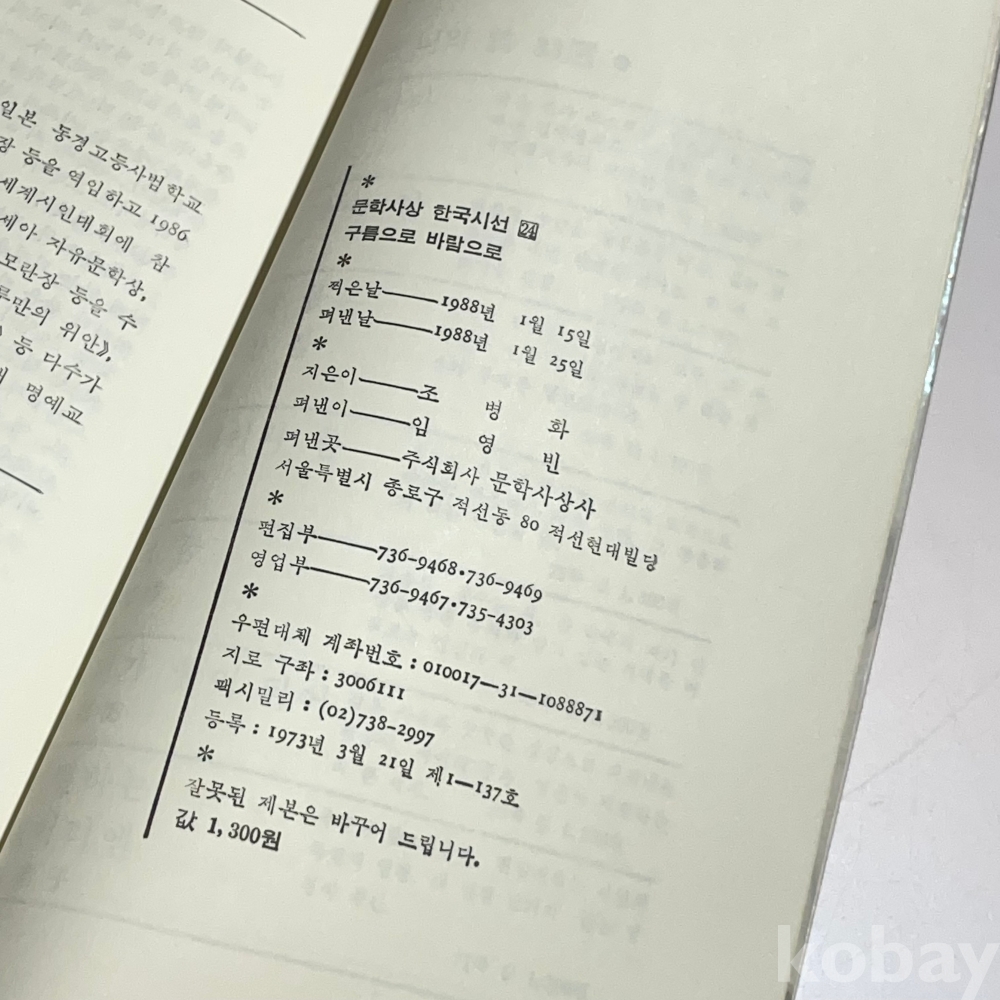 일본 동경고등사범학교
장 등을 역임하고 1986
세계시인대회에 참
세아 자유문학상,
모란장 등을 수
루만의 위안》,
등 다수가
명예교
*
문학사상 한국시선 24
구름으로 바람으로
*
찍은날――1988년 1월 15일
펴낸날――1988년 1월 25일
*
지은이――조 병 화
펴낸이――임 영 빈
펴낸곳――주식회사 문학사상사
서울특별시 종로구 적선동 80 적선현대빌딩
*
편집부――736-9468·736-9469
영업부――736-9467·735-4303
*
우편대체 계좌번호 : 010017―31―1088871
지로 구좌 : 3006111
팩시밀리 : (02)738-2997
등록 : 1973년 3월 21일 제1―137호
*
잘못된 제본은 바꾸어 드립니다.
값 1,300원
kobay